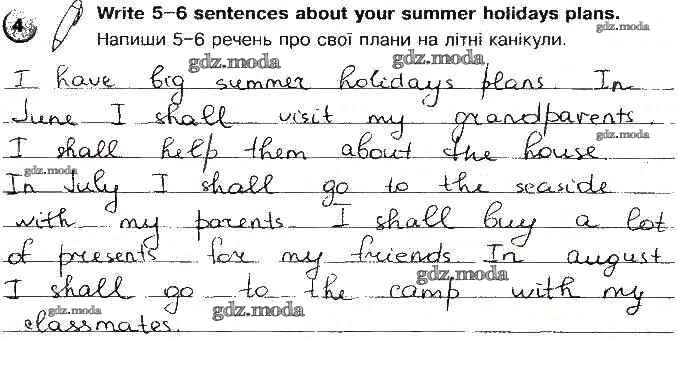 4 Write 5–6 sentences about your summer holidays plans.
gdz.moda
Напиши 5–6 речень про свої плани на літні канікули.
gdz.moda gdz.moda
I have big summer holidays plans. In
June I shall visit my grandparents.
gdz.moda
I shall help them about the house.
gdz.moda
In July I shall go to the seaside
with my parents. I shall buy a lot
of presents for my friends. In august
gdz.moda
I shall go to the camp with my
gdz.moda gdz.moda
classmates.